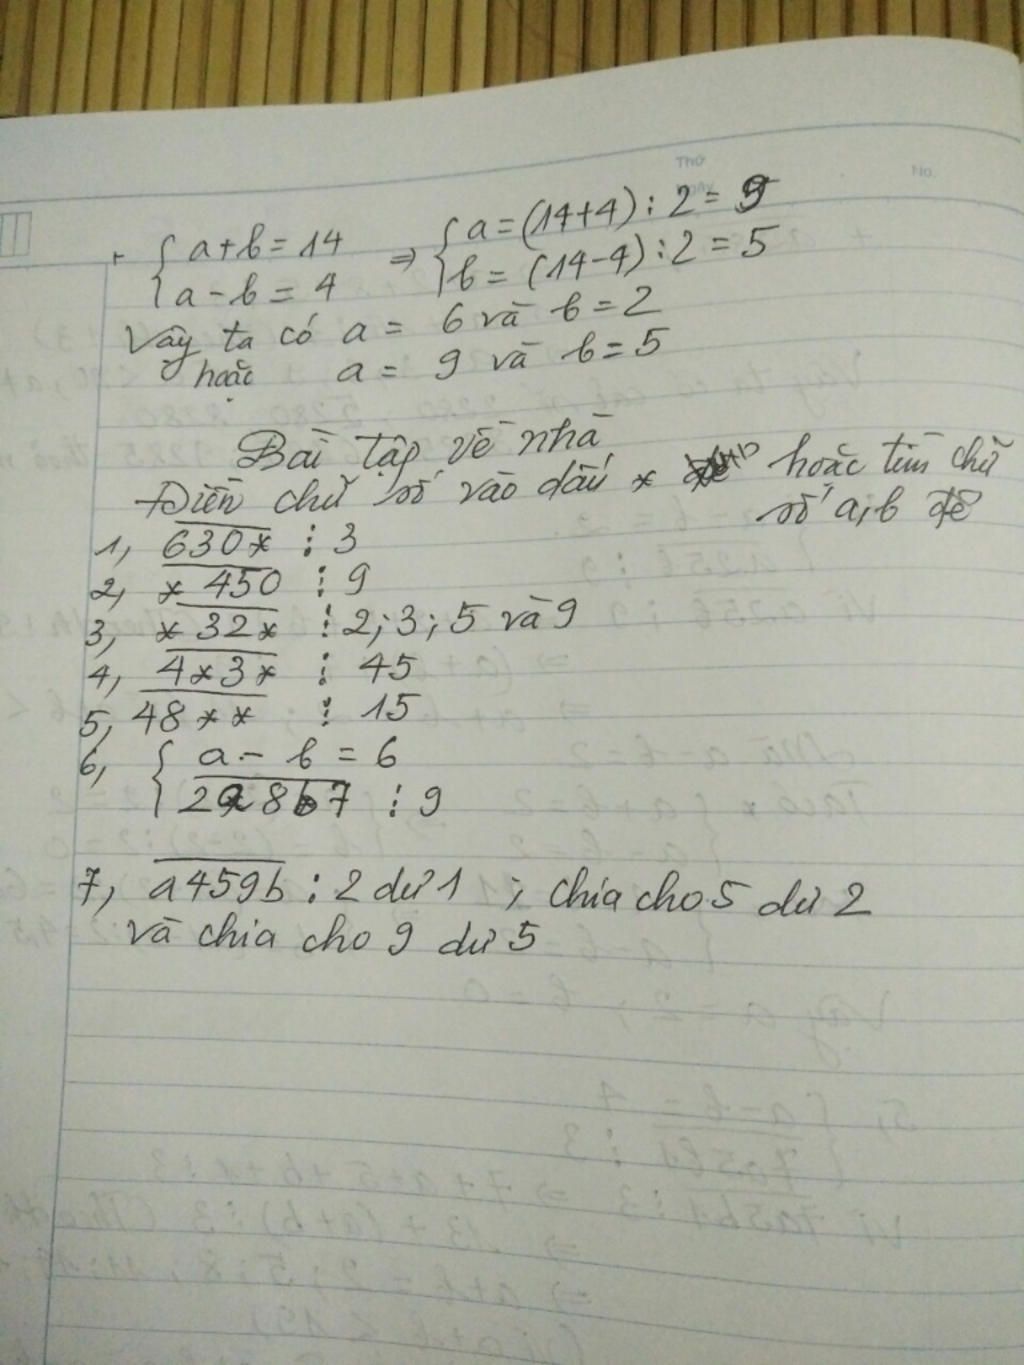 Thứ
Ngày
No.
+ { a+b=14 ⇒ { a=(14+4):2=9
a-b=4 b=(14-4):2=5
Vậy ta có a= 6 và b=2
hoặc a= 9 và b=5
Bài tập về nhà
Điền chữ số vào dấu * hoặc tìm chữ
số a,b để
1, 630* ⋮ 3
2, *450 ⋮ 9
3, *32* ⋮ 2;3;5 và 9
4, 4*3* ⋮ 45
5, 48** ⋮ 15
6, { a - b = 6
2a8b7 ⋮ 9
7, a459b : 2 dư 1 ; chia cho 5 dư 2
và chia cho 9 dư 5